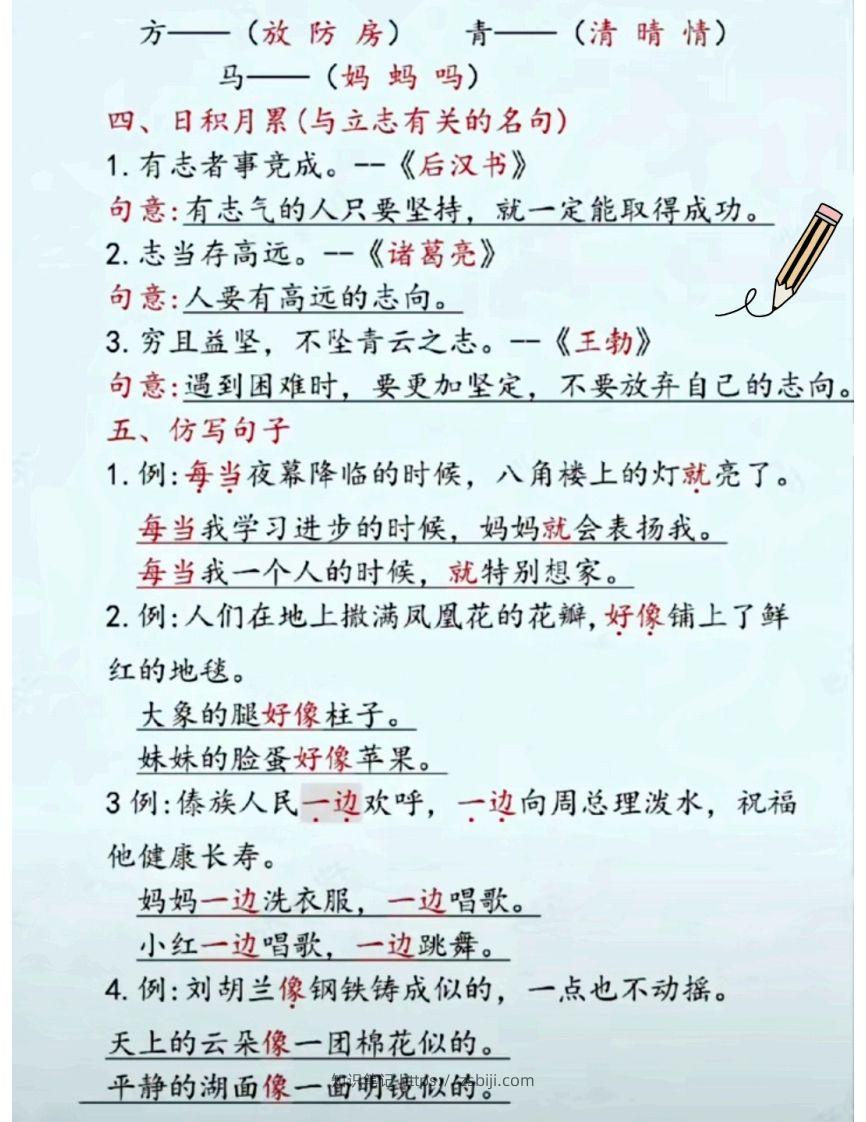 方——（放 防 房） 青——（清 晴 情）
马——（妈 蚂 吗）
四、日积月累(与立志有关的名句)
1.有志者事竞成。--《后汉书》
句意:有志气的人只要坚持，就一定能取得成功。
2.志当存高远。--《诸葛亮》
句意:人要有高远的志向。
3.穷且益坚，不坠青云之志。--《王勃》
句意:遇到困难时，要更加坚定，不要放弃自己的志向。
五、仿写句子
1.例:每当夜幕降临的时候，八角楼上的灯就亮了。
每当我学习进步的时候，妈妈就会表扬我。
每当我一个人的时候，就特别想家。
2.例:人们在地上撒满凤凰花的花瓣,好像铺上了鲜
红的地毯。
大象的腿好像柱子。
妹妹的脸蛋好像苹果。
3例:傣族人民一边欢呼，一边向周总理泼水，祝福
他健康长寿。
妈妈一边洗衣服，一边唱歌。
小红一边唱歌，一边跳舞。
4.例:刘胡兰像钢铁铸成似的，一点也不动摇。
天上的云朵像一团棉花似的。
平静的湖面像一面明镜似的。
知识笔记-https://zsbiji.com